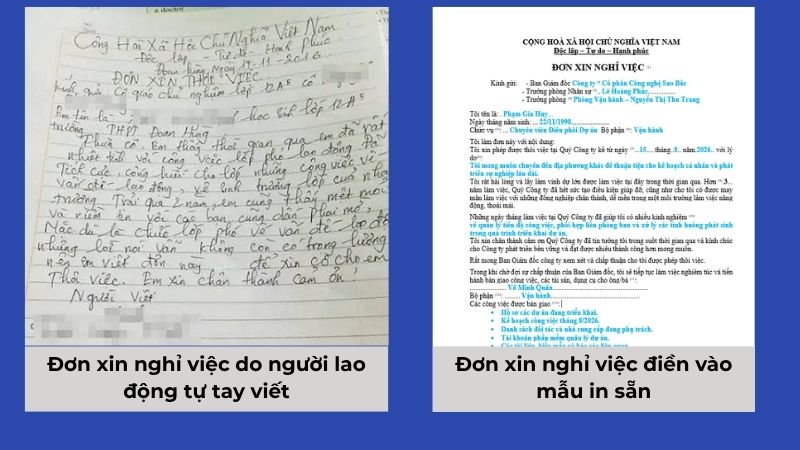 a doctor
Cộng Hoà Xã Hội Chủ Nghĩa Việt Nam
Độc lập Tự do – Hạnh Phúc
Đoan hùng, Ngày 19-11-2016
ĐƠN XIN THÔI VIỆC
Kính gửi: Cô giáo chủ nghiệm lớp 12A5 cô
Em tên là: học sinh lớp 12A5
trường THPT Đoan Hùng
Thưa cô. Em thấy thời gian qua em đã rất
nhiệt tình với công việc lớp phó lao động. Đã
Tích cực cống hiến cho lớp những công việc về
vấn đề lao động, vệ sinh trường lớp của nhà
trường. Trải qua 2 năm, em cũng thấy mệt mỏi
và niềm tin với các bạn cũng dần phai mờ,
Mặc dù là chức lớp phó về vấn đề lao động
nhưng lời nói vẫn không còn có trọng lượng
nên em viết đơn này để xin cô cho em
Thôi việc. Em xin chân thành cảm ơn!
Người Viết
Đơn xin nghỉ việc do người lao
động tự tay viết
CỘNG HOÀ XÃ HỘI CHỦ NGHĨA VIỆT NAM
Độc lập – Tự do – Hạnh phúc
ĐƠN XIN NGHỈ VIỆC
Kính gửi: - Ban Giám đốc Công ty Cổ phần Công nghệ Sao Bắc
- Trưởng phòng Nhân sự : Lê Hoàng Phúc
- Trưởng phòng Phòng Vận hành – Nguyễn Thị Thu Trang
Tôi tên là: . Phạm Gia Huy...
Ngày tháng năm sinh: ... 22/11/1998
Chức vụ : ... Chuyên viên Điều phối Dự án Bộ phận : Vận hành
Tôi làm đơn này với nội dung:
Tôi xin phép được thôi việc tại Quý Công ty kể từ ngày ...15.....tháng..8.. năm.2026.. với lý
do
Tôi mong muốn chuyển đến địa phương khác để thuận tiện cho kế hoạch cá nhân và phát
triển sự nghiệp lâu dài.
Tôi rất hài lòng và lấy làm vinh dự lớn được làm việc tại đây trong thời gian qua. Hơn .3...
năm làm việc, Quý Công ty đã hết sức tạo điều kiện giúp đỡ, cũng như cho tôi có được may
mắn làm việc với những đồng nghiệp chân thành, dễ mến trong một môi trường làm việc năng
động, thoải mái.
Những ngày tháng làm việc tại Quý Công ty đã giúp tôi có nhiều kinh nghiệm
về quản lý tiến độ công việc, phối hợp liên phòng ban và xử lý các tình huống phát sinh
trong quá trình triển khai dự án.
Tôi xin chân thành cảm ơn Quý Công ty đã tin tưởng tôi trong suốt thời gian qua và kính chúc
cho Công ty phát triển bền vững và đạt được nhiều thành công hơn mong muốn.
Rất mong Ban Giám đốc công ty xem xét và chấp thuận cho tôi được phép thôi việc.
Trong khi chờ đợi sự chấp thuận của Ban Giám đốc, tôi sẽ tiếp tục làm việc nghiêm túc và tiến
hành bàn giao công việc, các tài sản, dụng cụ cho ông/bà
Võ Minh Quân
Bộ phận : ......... Vận hành
Các công việc được bàn giao :
• Hồ sơ các dự án đang triển khai.
• Kế hoạch công việc tháng 8/2026.
• Danh sách đối tác và nhà cung cấp đang phụ trách.
• Tài khoản phần mềm quản lý dự án.
Đơn xin nghỉ việc điền vào
mẫu in sẵn